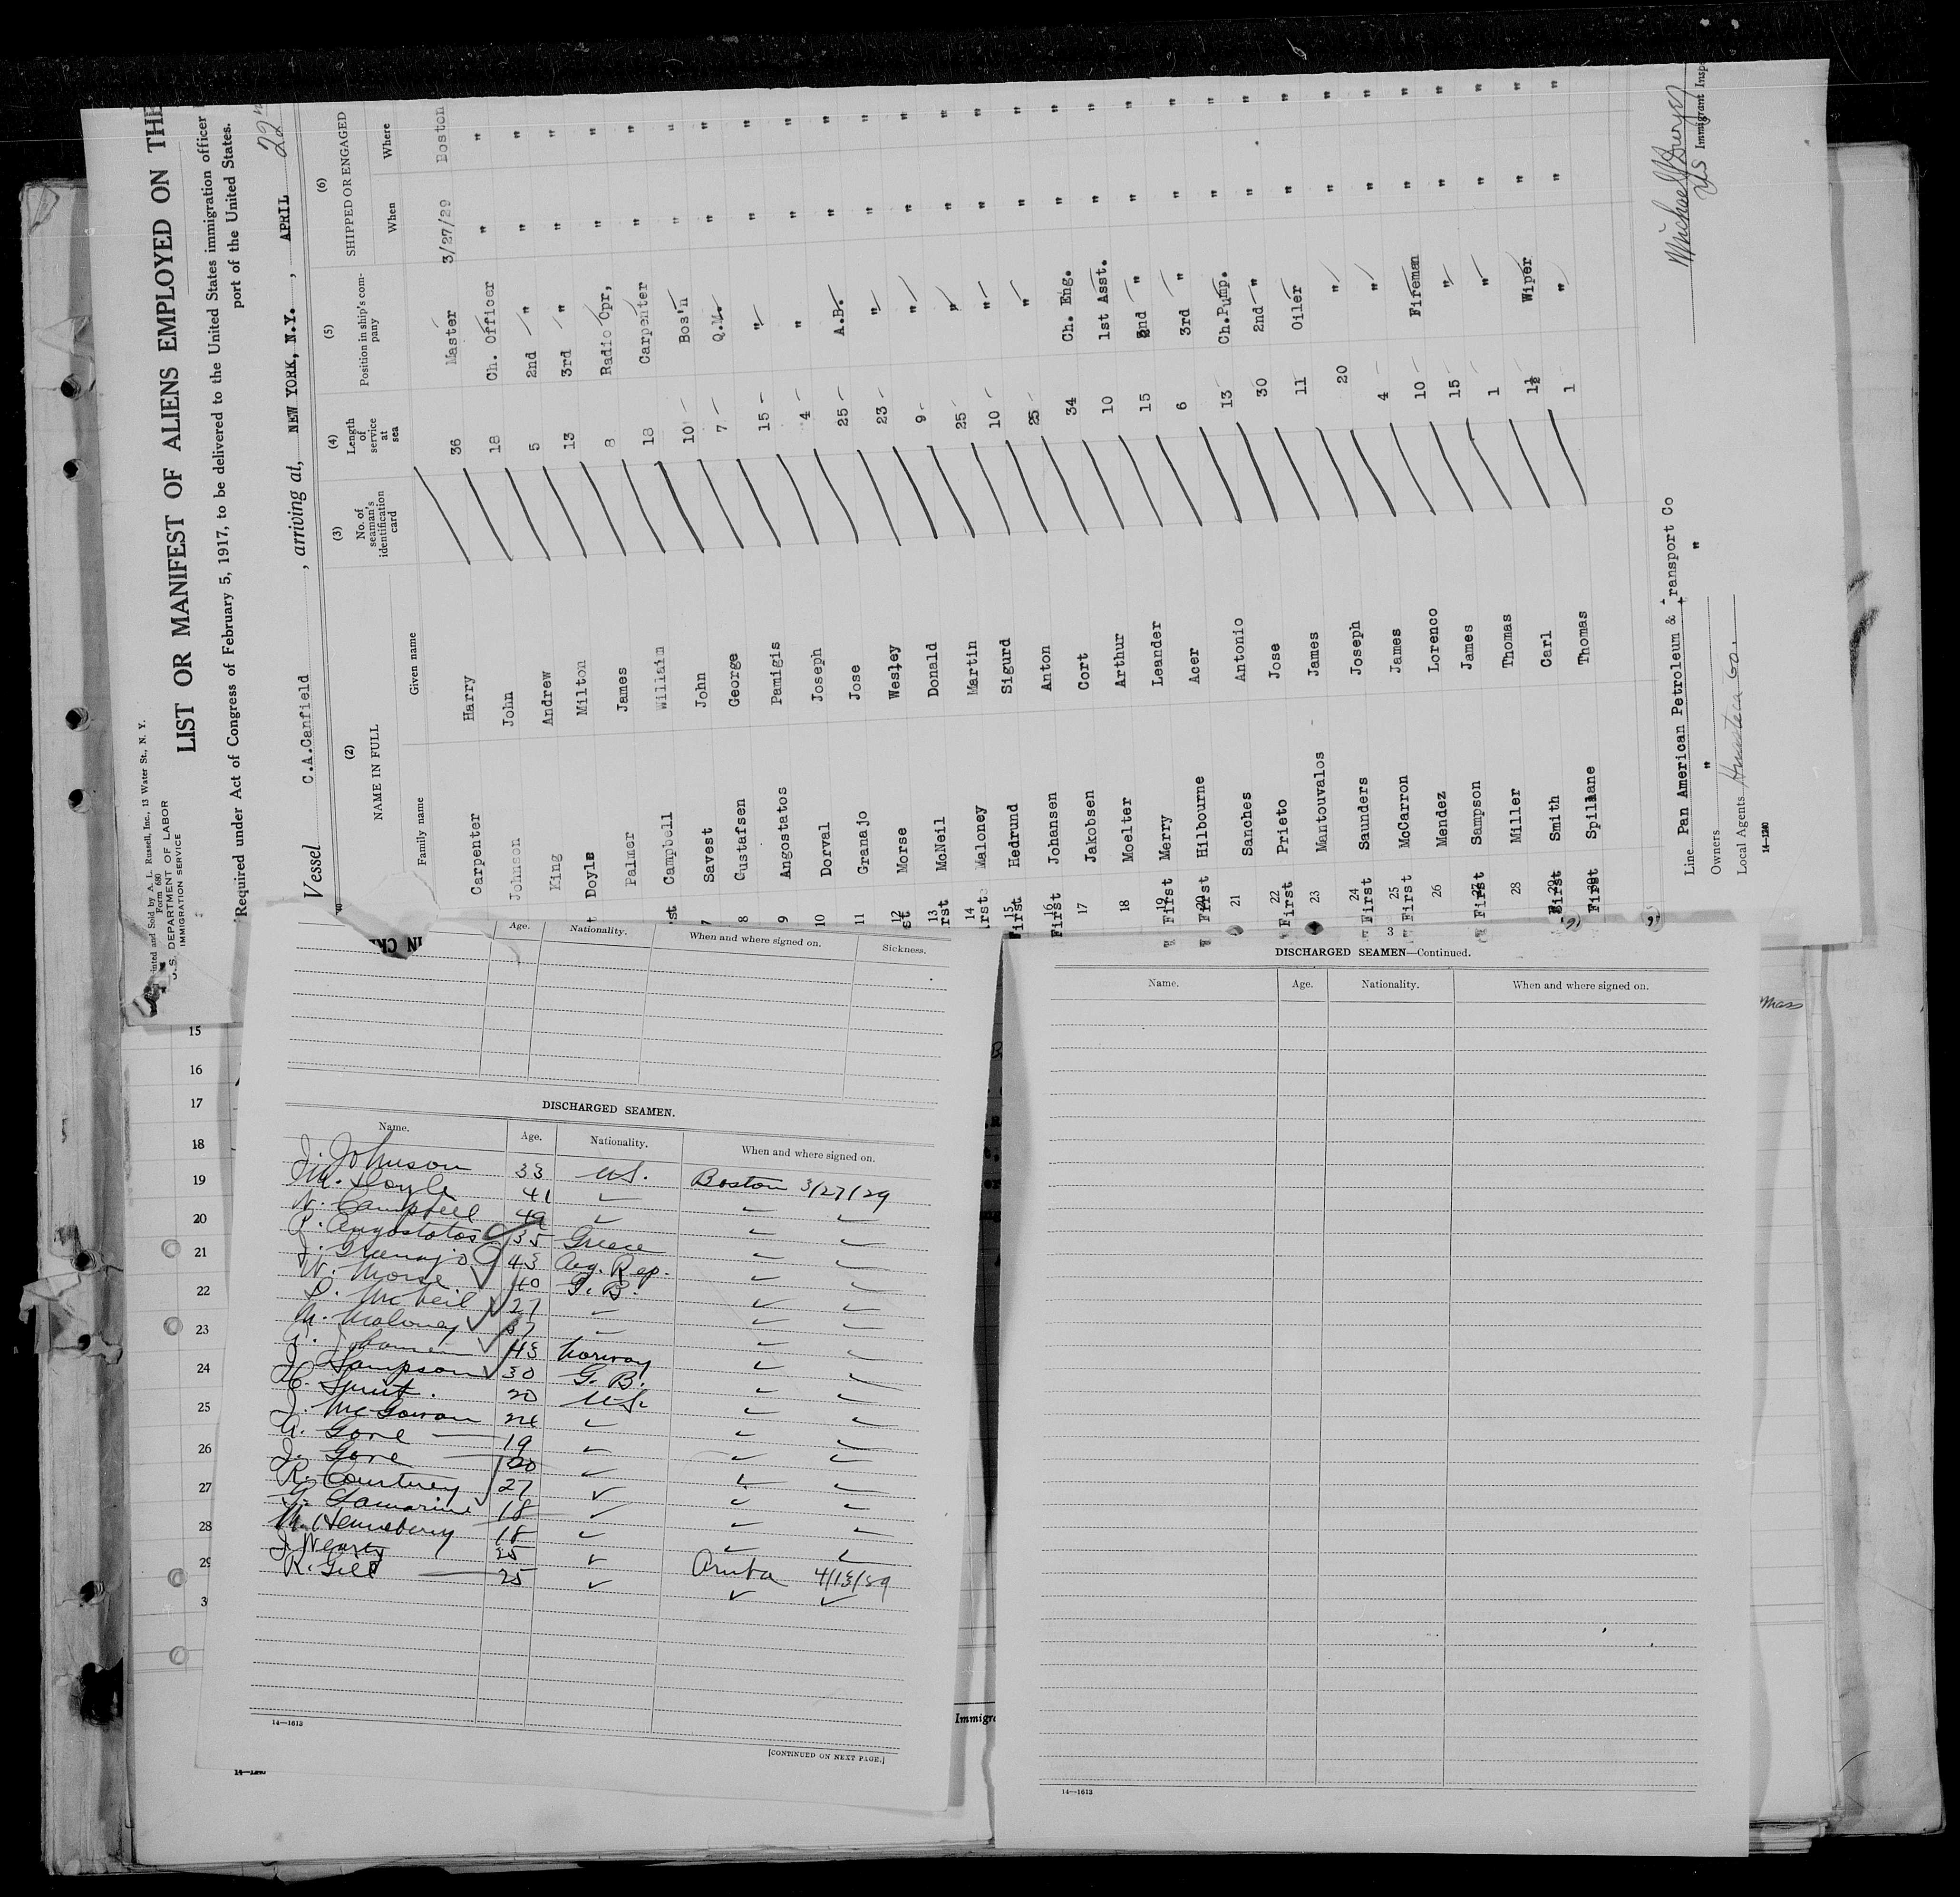 Printed and Sold by A. L. Russell, Inc., 13 Water St., N. Y.
Form 680
U. S. DEPARTMENT OF LABOR
IMMIGRATION SERVICE
LIST OR MANIFEST OF ALIENS EMPLOYED ON THE
Required under Act of Congress of February 5, 1917, to be delivered to the United States immigration officer
port of the United States.
Vessel C.A.Canfield , arriving at, NEW YORK, N.Y. , APRIL 22"
(2) (3) (4) (5) (6)
NAME IN FULL No. of seaman's identification card Length of service at sea Position in ship's company SHIPPED OR ENGAGED
Family name Given name When Where
Carpenter Harry 36 Master 3/27/29 Boston
Johnson John 18 Ch. Officer " "
King Andrew 5 2nd " " "
Doyle Milton 13 3rd " " "
Palmer James 8 Radio Opr, " "
Campbell William 18 Carpenter " "
7 Savest John 10 Bos'n " "
8 Gustafsen George 7 Q.M. " "
9 Angostatos Pamigis 15 " " "
10 Dorval Joseph 4 " " "
11 Granajo Jose 25 A.B. " "
12 Morse Wesley 23 " " "
13 McNeil Donald 9 " " "
14 Maloney Martin 25 " " "
15 First Hedrund Sigurd 10 " " "
16 First Johansen Anton 25 " " "
17 Jakobsen Cort 34 Ch. Eng. " "
18 Moelter Arthur 10 1st Asst. " "
19 First Merry Leander 15 2nd " " "
20 First Hilbourne Acer 6 3rd " " "
21 Sanches Antonio 13 Ch.Pump. " "
22 First Prieto Jose 30 2nd " " "
23 Mantouvalos James 11 Oiler " "
24 First Saunders Joseph 20 " " "
25 First McCarron James 4 " " "
26 Mendez Lorenco 10 Fireman " "
27 First Sampson James 15 " " "
28 Miller Thomas 1 " " "
29 First Smith Carl 1½ Wiper " "
30 First Spillane Thomas 1 " " "
Line Pan American Petroleum & transport Co
Owners " "
Local Agents Huasteca Co.
14-1240
US Immigrant Inspe
Age. Nationality. When and where signed on. Sickness.
DISCHARGED SEAMEN.
Name. Age. Nationality. When and where signed on.
J. Johnson 33 U.S. Boston 3/27/29
M. Doyle 41
W. Campbell 49
P. Angostatos 35 Greece
J. Granajo 43 Arg. Rep.
W. Morse 40 G. B.
D. McNeil 27
M. Maloney 37
A. Johansen 43 Norway
J. Sampson 30 G. B.
C. Smith. 20 U.S.
J. McGowan 24
A. Gove 19
J. Gove 20
R. Courtney 27
18
M. Henneberry 18
25 Aruba 4/13/29
R. Gill 25
14—1613
[CONTINUED ON NEXT PAGE.]
DISCHARGED SEAMEN—Continued.
Name. Age. Nationality. When and where signed on.
14—1613
15
16
17
18
19
20
21
22
23
24
25
26
27
28
29
3
Immigra
Mass